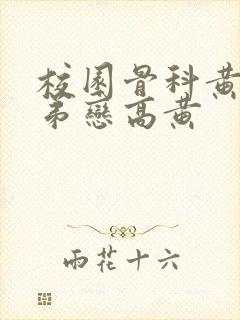 校園骨科黃
弟戀高黃
雨花十六